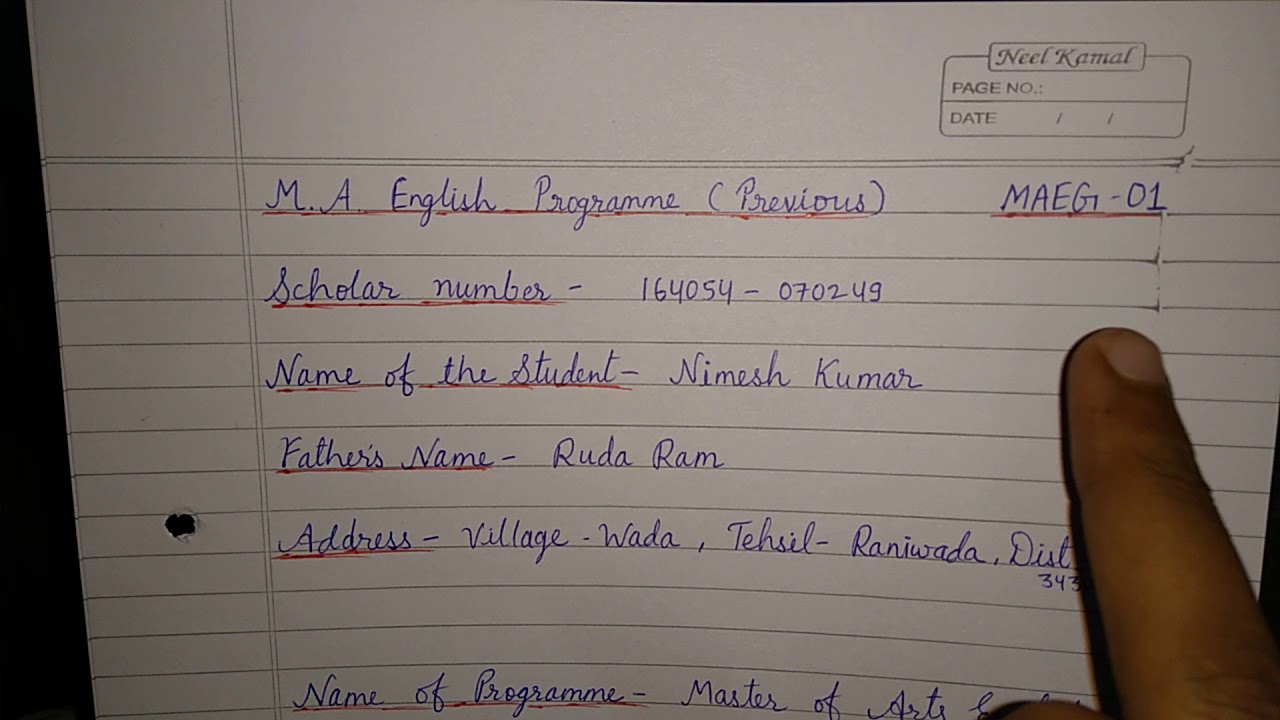 Neel Kamal
PAGE NO.:
DATE / /
M.A. English Programme (Previous) MAEG-01
Scholar number - 164054-070249
Name of the Student- Nimesh Kumar
Father's Name- Ruda Ram
Address- Village-Wada, Tehsil- Raniwada, Dist
343
Name of Programme- Master of Arts